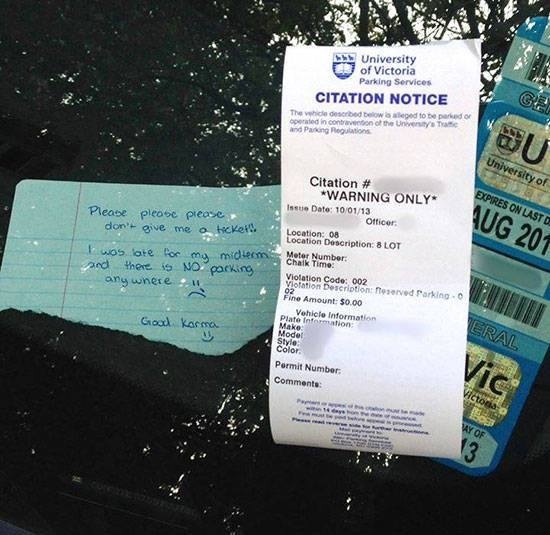 Please please please
don't give me a ticket!!
I was late for my midterm
and there is NO parking
anywhere !!
Good Karma
University
of Victoria
Parking Services
CITATION NOTICE
The vehicle described below is alleged to be parked or
operated in contravention of the University's Traffic
and Parking Regulations.
Citation #
*WARNING ONLY*
Issue Date: 10/01/13
Officer:
Location: 08
Location Description: 8 LOT
Meter Number:
Chalk Time:
Violation Code: 002
Violation Description: Reserved Parking - 0
02
Fine Amount: $0.00
Vehicle Information
Plate Information:
Make:
Model
Style:
Color:
Permit Number:
Comments:
Payment or appeal of this citation must be made
within 14 days from the date of issuance.
Fine must be paid before appeal is processed.
Please read reverse side for further instructions.
Mail payment to:
University of Victoria
U
University of
EXPIRES ON LAST D
AUG 201
ERAL
Vic
Victoria
AY OF
13